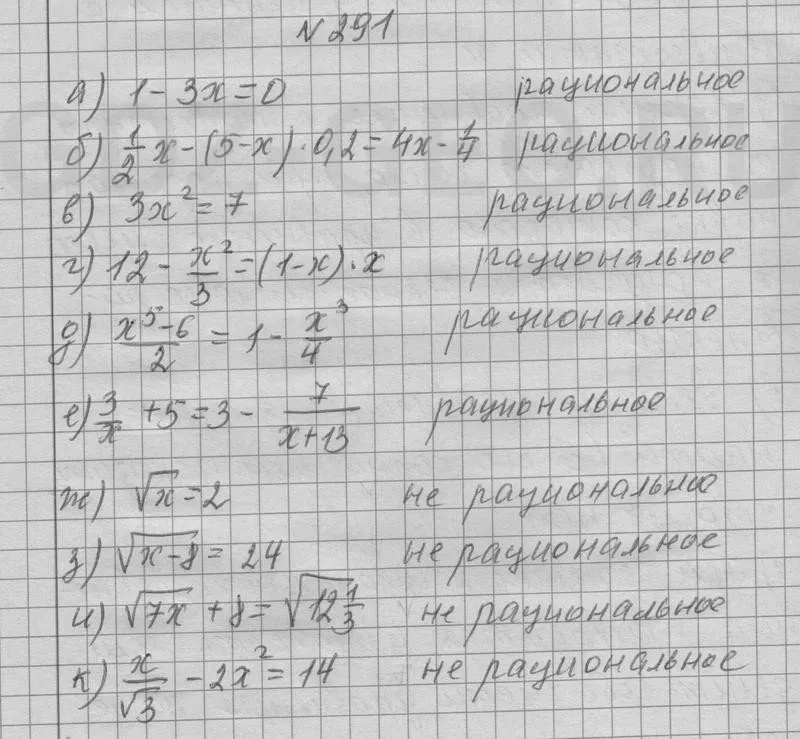 № 291
а) 1 - 3x = 0 рациональное
б) 1/2 x - (5-x) · 0,2 = 4x - 1/4 рациональное
в) 3x² = 7 рациональное
г) 12 - x²/3 = (1-x) · x рациональное
д) (x⁵-6)/2 = 1 - x³/4 рациональное
е) 3/x + 5 = 3 - 7/(x+13) рациональное
ж) √x = 2 не рациональное
з) √(x-8) = 24 не рациональное
и) √(7x) + 8 = √(12 1/3) не рациональное
к) x/√3 - 2x² = 14 не рациональное